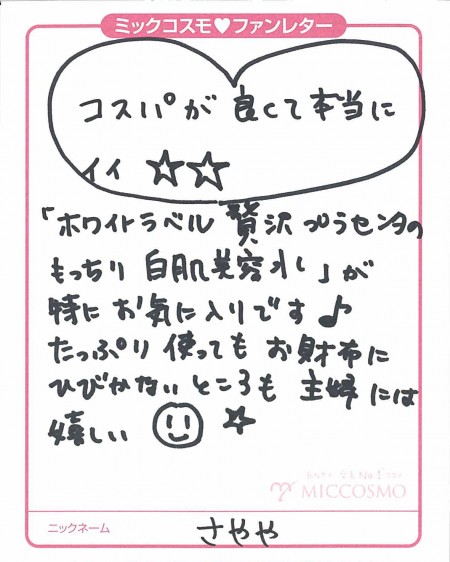 ミックコスモ♥ファンレター
コスパが良くて本当に
イイ ☆☆
「ホワイトラベル 贅沢プラセンタの
もっちり 白肌美容水」が
特に お気に入りです♪
たっぷり 使っても お財布に
ひびかない ところも 主婦には
嬉しい ☺ ☆
MICCOSMO
ニックネーム さやや